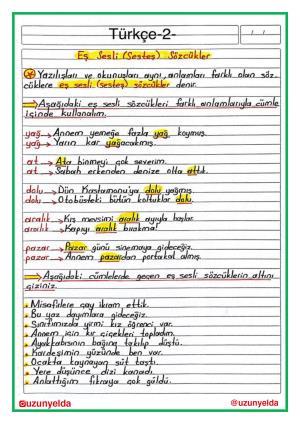 Türkçe-2-
/ /
Eş Sesli (Sesteş) Sözcükler
Yazılışları ve okunuşları aynı, anlamları farklı olan söz-
cüklere eş sesli (sesteş) sözcükler denir.
Aşağıdaki eş sesli sözcükleri farklı anlamlarıyla cümle
içinde kullanalım.
yağ → Annem yemeğe fazla yağ koymuş.
yağ → Yarın kar yağacakmış.
at → Ata binmeyi çok severim.
at → Sabah erkenden denize olta attık.
dolu → Dün Kastamonu'ya dolu yağmış.
dolu → Otobüsteki bütün koltuklar dolu.
aralık → Kış mevsimi aralık ayıyla başlar.
aralık → Kapıyı aralık bırakma!
pazar → Pazar günü sinemaya gideceğiz.
pazar → Annem pazardan portakal almış.
Aşağıdaki cümlelerde geçen eş sesli sözcüklerin altını
çiziniz.
Misafirlere çay ikram ettik.
Bu yaz dayımlara gideceğiz.
Sınıfımızda yirmi kız öğrenci var.
Annem için kır çiçekleri topladım.
Ayakkabısının bağına takılıp düştü.
Kardeşimin yüzünde ben var.
Ocakta kaynayan süt taştı.
Yere düşünce dizi kanadı.
Anlattığım fıkraya çok güldü.
@uzunyelda @uzunyelda